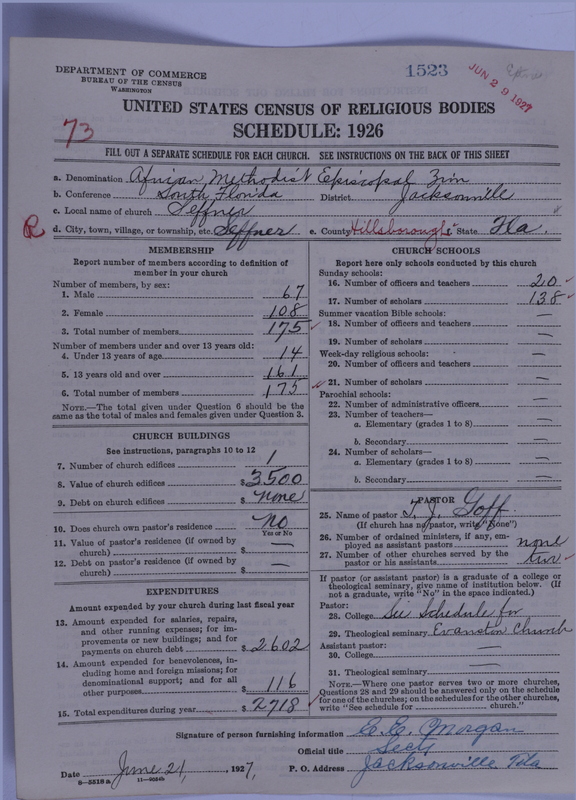 1523
JUN 29 1927
DEPARTMENT OF COMMERCE
BUREAU OF THE CENSUS
WASHINGTON
UNITED STATES CENSUS OF RELIGIOUS BODIES
73
SCHEDULE: 1926
FILL OUT A SEPARATE SCHEDULE FOR EACH CHURCH. SEE INSTRUCTIONS ON THE BACK OF THIS SHEET
a. Denomination African Methodist Episcopal Zion
b. Conference South Florida District Jacksonville
c. Local name of church Seffner
R d. City, town, village, or township, etc. Seffner e. County Hillsborough State Fla.
MEMBERSHIP
Report number of members according to definition of
member in your church
Number of members, by sex:
1. Male 67
2. Female 108
3. Total number of members 175
Number of members under and over 13 years old:
4. Under 13 years of age 14
5. 13 years old and over 161
6. Total number of members 175
NOTE.—The total given under Question 6 should be
same as the total of males and females given under Question 3.
CHURCH BUILDINGS
See instructions, paragraphs 10 to 12
7. Number of church edifices 1
8. Value of church edifices $3,500
9. Debt on church edifices $ none
10. Does church own pastor's residence No
Yes or No
11. Value of pastor's residence (if owned by
church) $ —
12. Debt on pastor's residence (if owned by
church) $ —
EXPENDITURES
Amount expended by your church during last fiscal year
13. Amount expended for salaries, repairs,
and other running expenses; for im-
provements or new buildings; and for
payments on church debt $ 2602
14. Amount expended for benevolences, in-
cluding home and foreign missions; for
denominational support; and for all
other purposes $ 116
15. Total expenditures during year $ 2718
CHURCH SCHOOLS
Report here only schools conducted by this church
Sunday schools:
16. Number of officers and teachers 20
17. Number of scholars 138
Summer vacation Bible schools:
18. Number of officers and teachers —
19. Number of scholars —
Week-day religious schools:
20. Number of officers and teachers —
21. Number of scholars —
Parochial schools:
22. Number of administrative officers —
23. Number of teachers—
a. Elementary (grades 1 to 8) —
b. Secondary —
24. Number of scholars—
a. Elementary (grades 1 to 8) —
b. Secondary —
PASTOR
25. Name of pastor T. J. Goff
(If church has no pastor, write "None")
26. Number of ordained ministers, if any, em-
ployed as assistant pastors none
27. Number of other churches served by the
pastor or his assistants two
If pastor (or assistant pastor) is a graduate of a college or
theological seminary, give name of institution below. (If
not a graduate, write "No" in the space indicated.)
Pastor:
28. College See Schedule for
29. Theological seminary Evanston Church
Assistant pastor:
30. College —
31. Theological seminary —
NOTE.—Where one pastor serves two or more churches,
Questions 28 and 29 should be answered only on the schedule
for one of the churches; on the schedules for the other churches,
write "See schedule for church."
Signature of person furnishing information E. E. Morgan
Official title Secy
Date June 21, 1927, P. O. Address Jacksonville Fla
8—5518 a